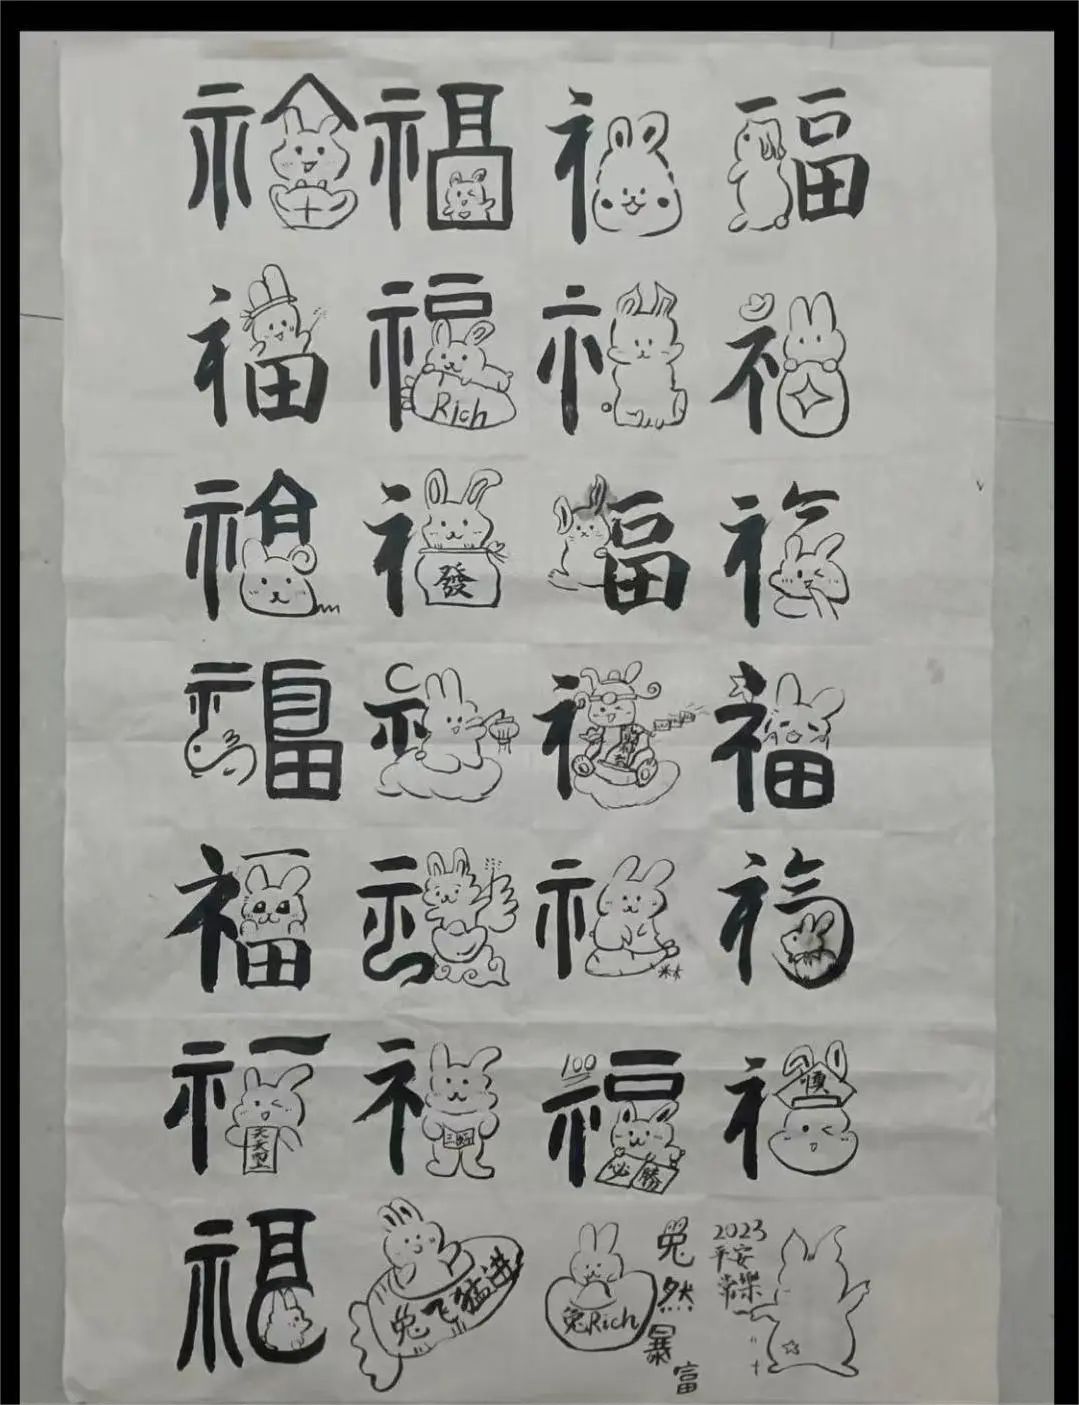 福 福 福 福
福 福 Rich 福 福
福 福 發 福 福
福 福 福 福
福 福 福 福
福 福 100 福 必勝 福
福 兔飞猛进 兔Rich 兔然暴富 2023 平安 常樂